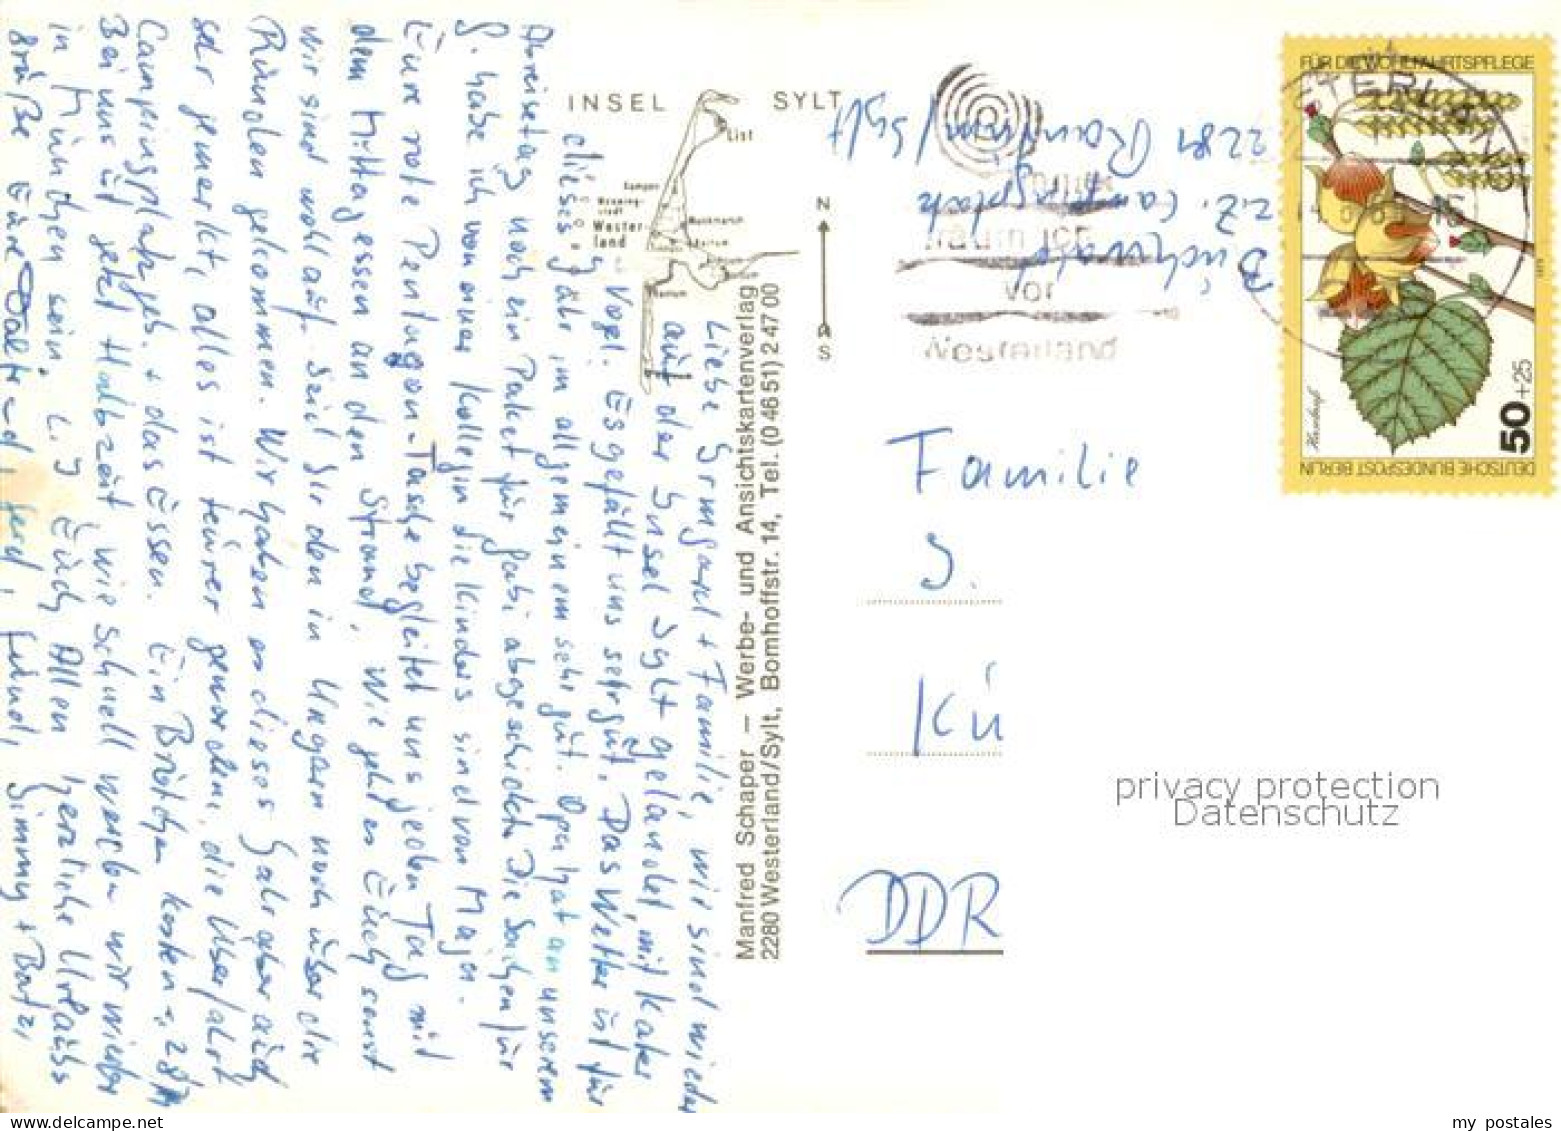 Liebe Irmgard + Familie, wir sind wieder
auf der Insel Sylt gelandet, mit Kater
Vogl. Es gefällt uns sehr gut. Das Wetter ist für
dieses Jahr im allgemeinem sehr gut. Opa hat an unserem
Abreisetag noch ein Paket für Gabi abgeschickt. Die Sachen für
S. habe ich von einer Kollegin die Kinders sind von Majn.
Eure rote Pentagon-Tasche begleitet uns jeden Tag mit
dem Mittagessen an den Strand. Wie geht es Euch sonst
wir sind wohlauf. Seid Ihr den in Ungarn noch über die
Runden gekommen. Wir haben es dieses Jahr aber auch
sehr gemerkt, alles ist teurer geworden, die Überfahrt
Campingplatzgeb. + das Essen. Ein Brötchen kosten -,28
Bei uns ist jetzt Halbzeit wie schnell werden wir wieder
in München sein. Euch Allen herzliche Urlaubs
grüße Eure
INSEL SYLT
List
Kampen
Wester-
land
N
S
Manfred Schaper — Werbe- und Ansichtskartenverlag
2280 Westerland/Sylt, Bomhoffstr. 14, Tel. (0 46 51) 2 47 00
Buchwald
z.Z. Campingplatz
2281 Rantum/Sylt
träum ich
vor
Westerland
FÜR DIE WOHLFAHRTSPFLEGE
50+25
DEUTSCHE BUNDESPOST BERLIN
Familie
S.
Kü
DDR
privacy protection
Datenschutz
my postales